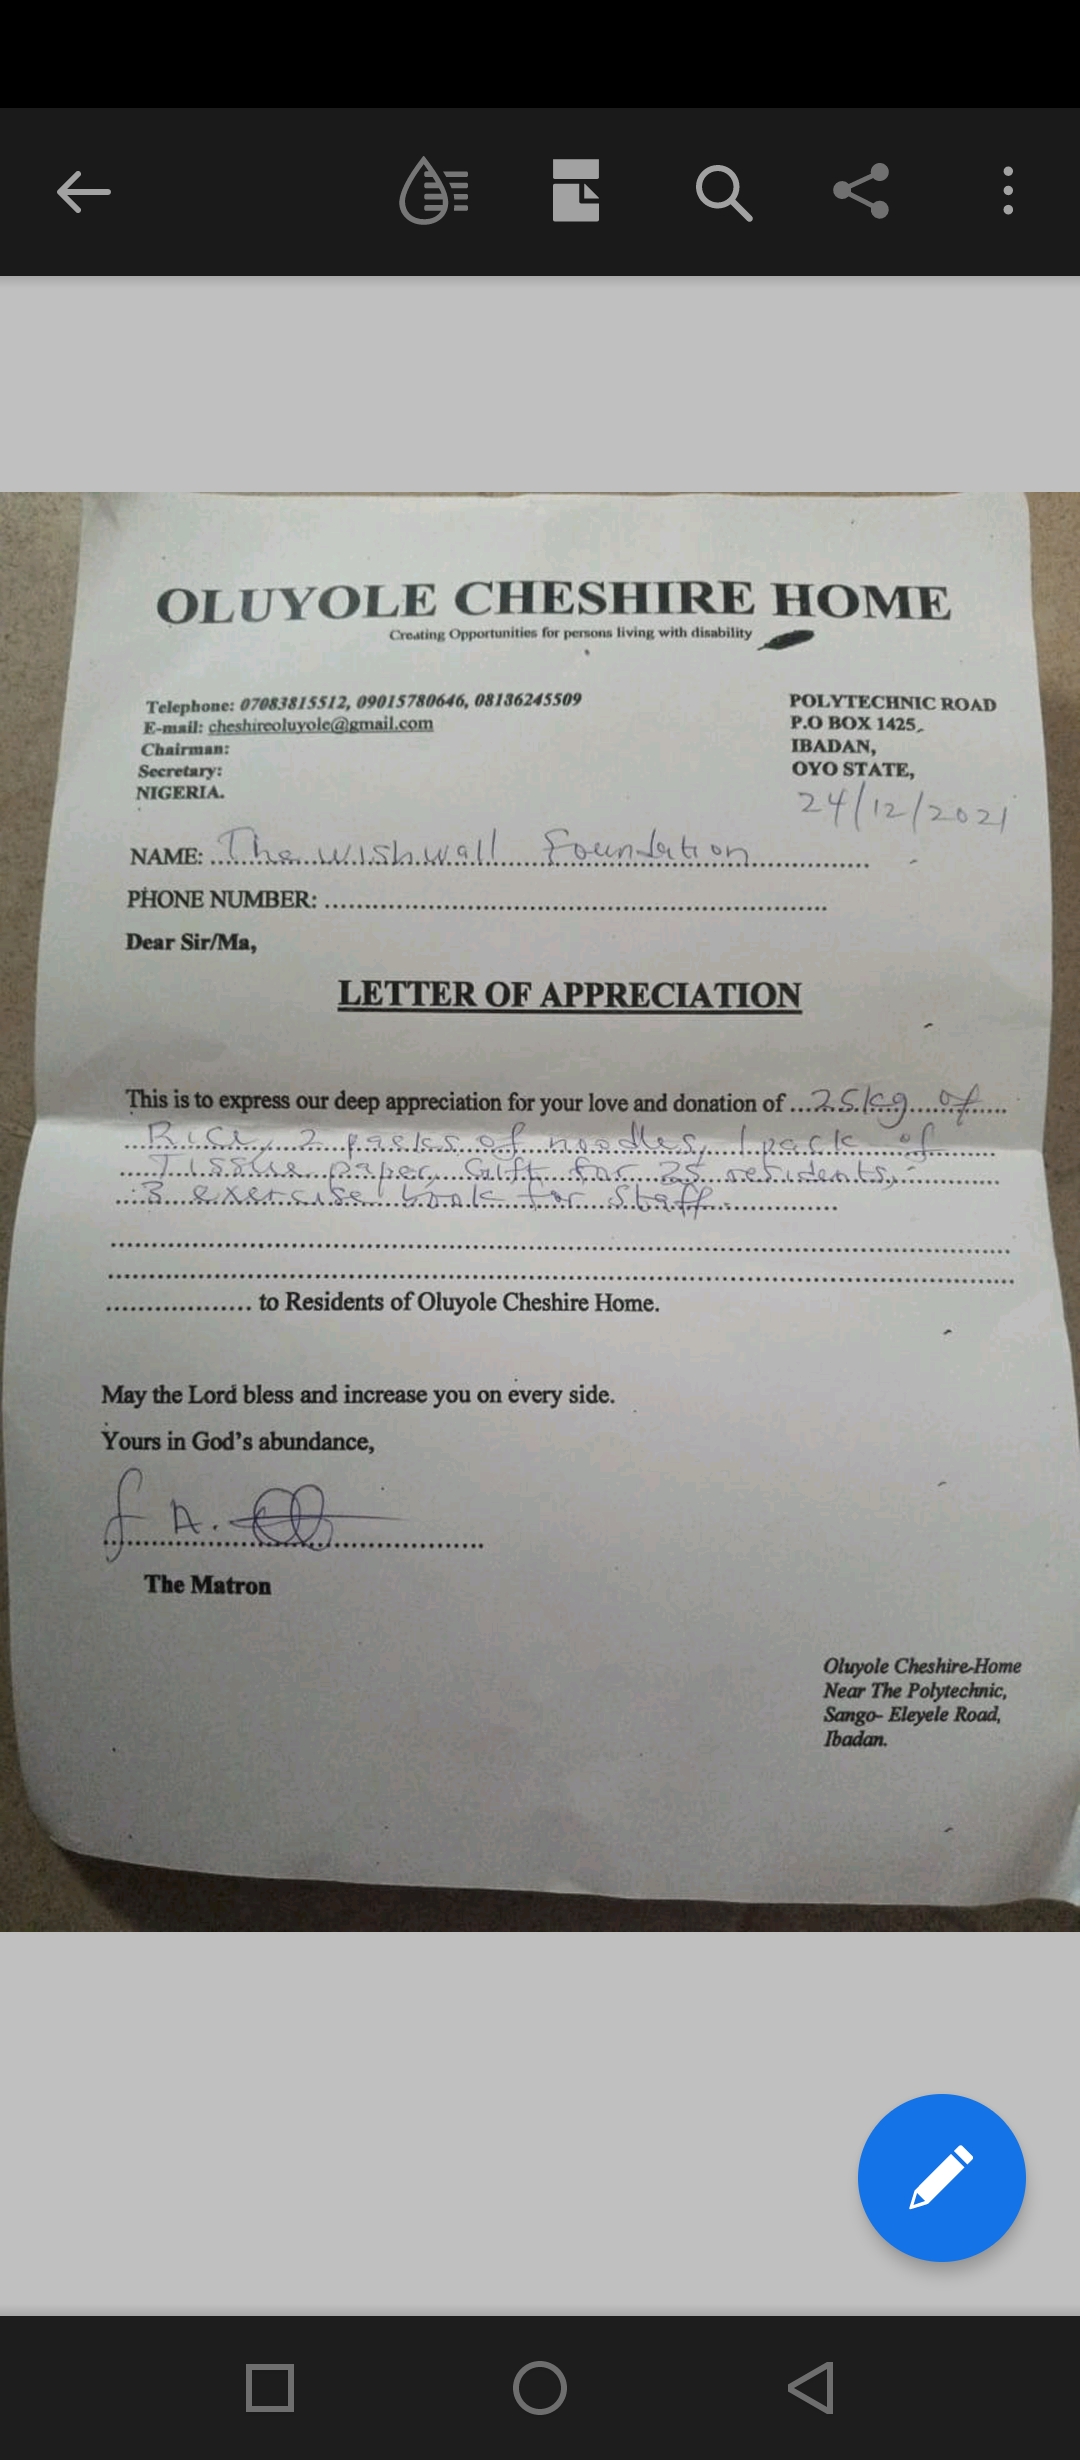 OLUYOLE CHESHIRE HOME
Creating Opportunities for persons living with disability
Telephone: 07083815512, 09015780646, 08136245509
E-mail: cheshireoluyole@gmail.com
Chairman:
Secretary:
NIGERIA.
POLYTECHNIC ROAD
P.O BOX 1425,
IBADAN,
OYO STATE,
24/12/2021
NAME: The wishwall Foundation
PHONE NUMBER:
Dear Sir/Ma,
LETTER OF APPRECIATION
This is to express our deep appreciation for your love and donation of 25kg of
Rice, 2 packs of noodles, 1 pack of
Tissue paper, Gift for 25 residents,
3 exercise book for Staff.
to Residents of Oluyole Cheshire Home.
May the Lord bless and increase you on every side.
Yours in God's abundance,
The Matron
Oluyole Cheshire-Home
Near The Polytechnic,
Sango- Eleyele Road,
Ibadan.